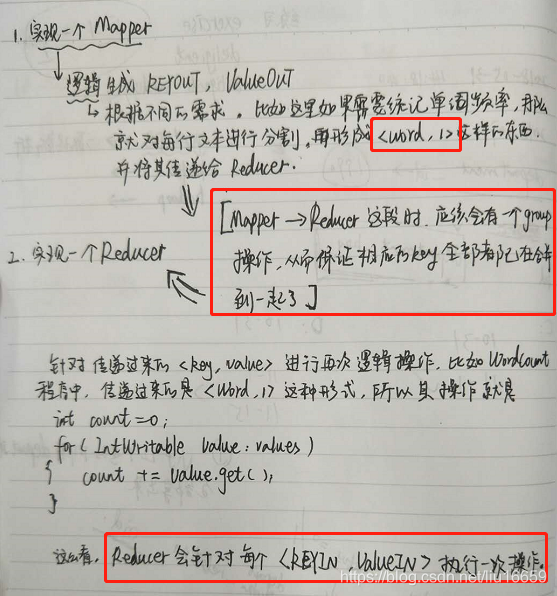 1. 实现一个 Mapper
逻辑生成 KEYOUT, ValueOUT
根据不同的需求. 比如这里如果需要统记单词频率, 那么
就对每行文本进行分割. 再形成 <word, 1> 这样的东西.
并将其传递给 Reducer.
[Mapper → Reducer 这段时, 应该会有一个 group
操作, 从而保证相应的 key 全部都已在合并
到一起了]
2. 实现一个 Reducer
针对传递过来的 <key, value> 进行再次逻辑操作, 比如 Wordcount
程序中, 传递过来的是 <Word, 1> 这种形式, 所以其操作就是
int count=0;
for( IntWritable value : values)
{ count += value.get();
}
Reducer 会针对每个 <KEYIN, ValueIN> 执行一次操作.
https://blog.csdn.net/liu16659